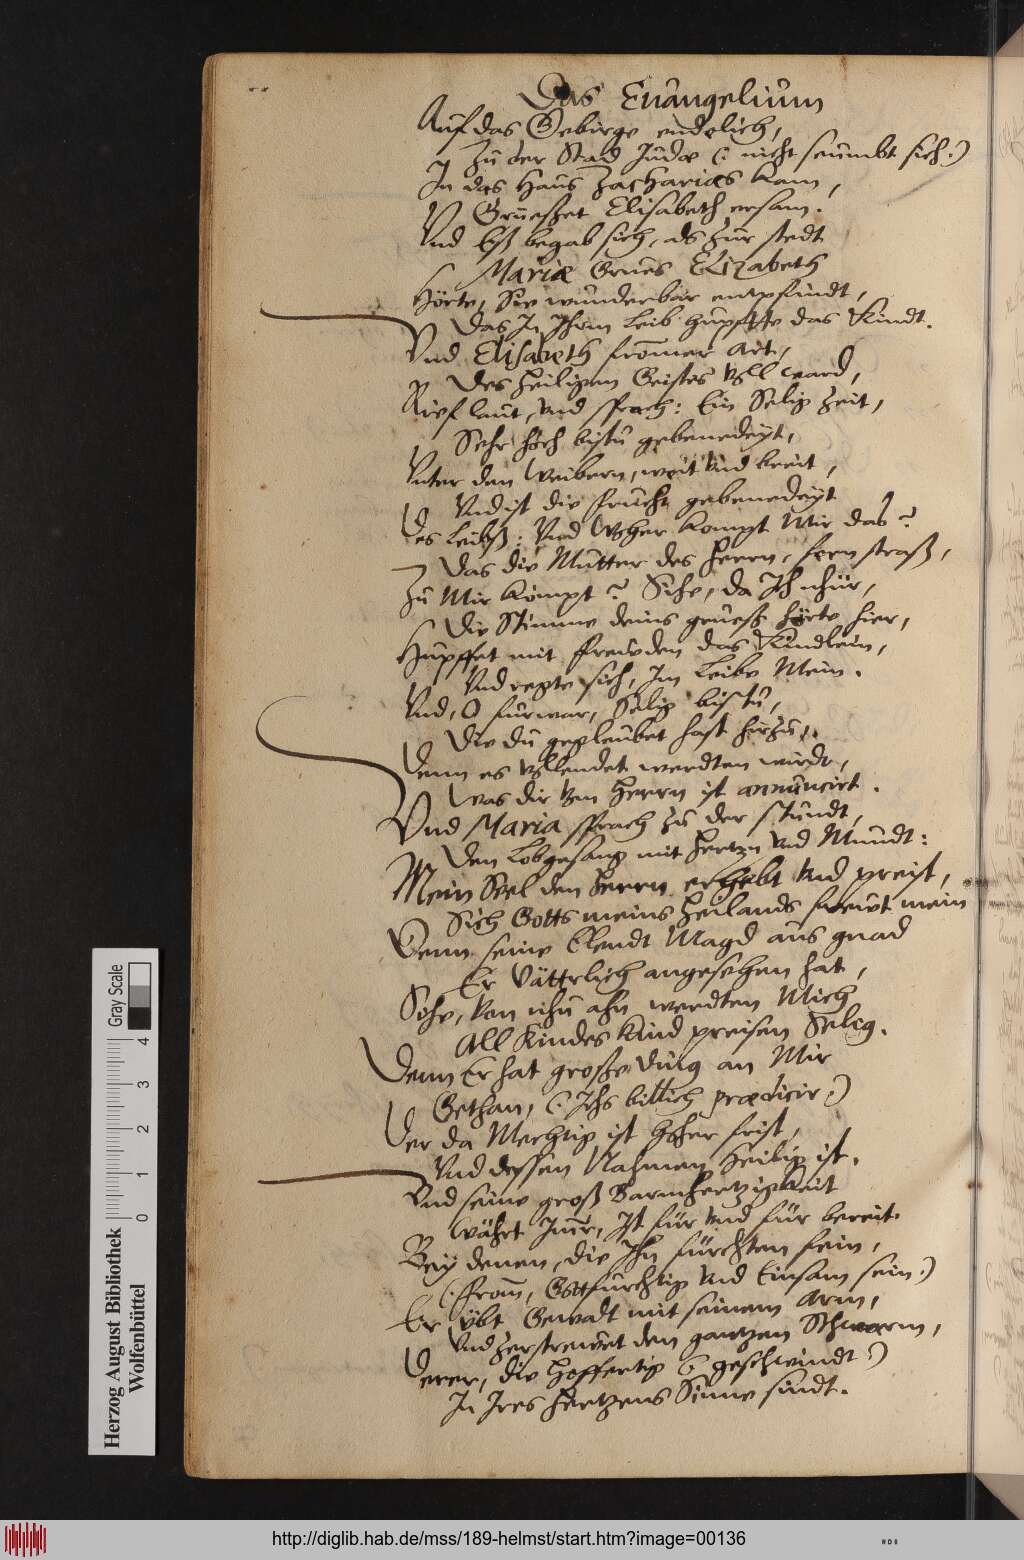 Das Euangelium
Auf das Gebirge endelich,
Zu der Stad Iudæ (: nicht seumbt sich:)
In das Haus Zacharias kam,
Vnd Gruesszet Elisabeth ersam.
Vnd Eß begab sich, als zur stedt
Mariæ Grues Elizabeth
Hörte, Sie wunderbar empfindt,
Das In Ihrm Leib hupffte das Kindt.
Vnd Elisabeth fromer Art,
Des Heiligen Geistes voll ward,
Rief laut, vnd sprach: Ein Selig Zeit,
Sehr hoch bistu gebenedeyt,
Vnter den Weibern, weit vnd breit,
Vnd ist die frucht gebenedeyt
Des Leibß: Vnd Woher kompt Mir das?
Das die Mutter des Herrn, fern straß,
Zu Mir kömpt? Sihe, da Ich nhür,
Die Stimme deins grueß hörte hier,
Hupffet mit frewden das Kindlein,
Vnd regte sich, Im Leibe Mein.
Vnd, O fürwar, Selig bistu,
Die du gegleubet hast hirzu,
Denn es vollendet werdten wirdt,
Was dir vom Herrn ist annuncirt.
Vnd Maria sprach zu der stundt,
Den Lobgesang mit Hertzn vnd Mundt:
Mein Seel den Herrn erhebt vnd preist,
Sich Gotts meins Heilands frewt mein
Denn seine Elendt Magd aus gnad
Er Vättrlich angesehen hat,
Sihe, Von nhu ahn werdten Mich
All Kindes Kind preisen Selig.
Denn Er hat große Ding an Mir
Gethan, (: Ichs billich prædicir:)
Der da Mechtig ist hoher frist,
Vnd dessen Nahmen Heilig ist.
Vnd seine groß Barmhertzigkeit
Währt Imr, Ist für vnd für bereit.
Bey denen, die Ihn fürchten fein,
(: From, Gottfürchtig vnd Einsam sein:)
Er übt Gewalt mit seinem Arm,
Vnd zerstrewet den gantzen Schwarm,
Derer, die Hoffertig (: geschwindt:)
In Ires Hertzens Sinne sindt.
Gray Scale
4
3
2
1
0
Herzog August Bibliothek
Wolfenbüttel
http://diglib.hab.de/mss/189-helmst/start.htm?image=00136